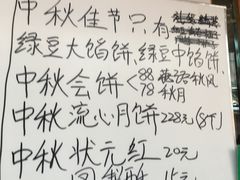 中秋佳节只有
绿豆大馅饼,绿豆中馅饼
中秋会饼<88德语秋风
78秋月
中秋流心月饼228元(8个)
中秋状元红20元
15元